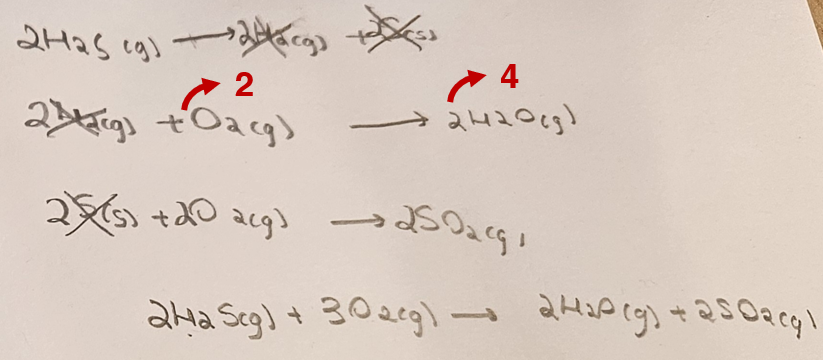 2H2S(g) → 2H2(g) + 2S(s)
2 4
2H2(g) + O2(g) → 2H2O(g)
2S(s) + 2O2(g) → 2SO2(g)
2H2S(g) + 3O2(g) → 2H2O(g) + 2SO2(g)